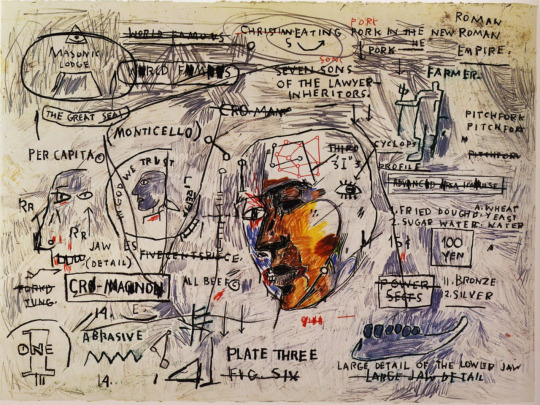 WORLD FAMOUS
MASONIC
LODGE
WORLD FAMOUS
CHRISTIAN EATING
PORK
PORK IN THE NEW ROMAN
ROMAN
PORK THE
EMPIRE:
SONS
SEVEN SONS
OF THE LAWYER
INHERITORS.
FARMER.
THE GREAT SEAL
CRO-MAN
PITCHFORK
PITCHFORK
PITCHFORK
MONTICELLO)
PER CAPITA©
IN GOD WE TRUST
LIBERTY
THIRD
3 I's
CYCLOPS
PROFILE
A. WHEAT
1. FRIED DOUGH D. YEAST
2. SUGAR WATER: WATER
RR
RR
JAW
(DETAIL)
ES
FIVE CENTS PIECE.
15¢
100
YEN
PORKO
TUNG.
CRO-MAGNON
ALL BEEF©
POWER
SEEKS
11. BRONZE
2. SILVER
14.
E.
ONE
I
III
ABRASIVE
14.
PLATE THREE
FIG. SIX
LARGE DETAIL OF THE LOWER JAW
LARGE JAW DETAIL